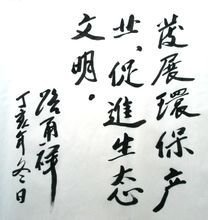 發展環保产
业，促進生态
文明。
路甬祥
丁亥年冬日